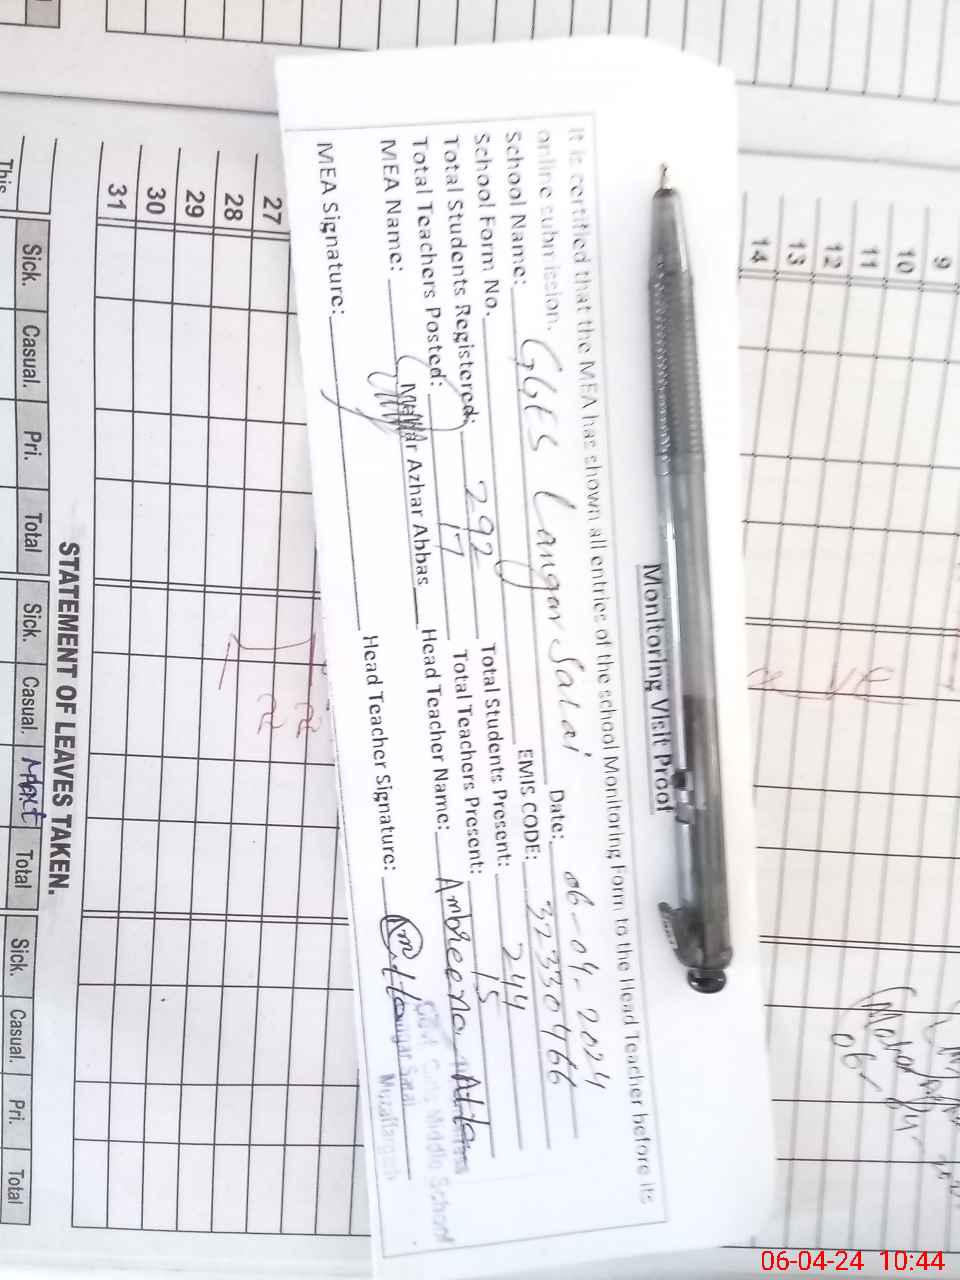 Monitoring Visit Proof
It is certified that the MEA has shown all entries of the school Monitoring Form to the Head Teacher before its
online submission.
School Name: GGES Langar Sarai Date: 06-04-2024
School Form No. EMIS CODE: 32330466
Total Students Registered: 292 Total Students Present: 244
Total Teachers Posted: 17 Total Teachers Present: 15
MEA Name: Azhar Abbas Head Teacher Name: Ambreena
MEA Signature: Head Teacher Signature:
Govt. Girls Middle School
Langar Sarai
Muzaffargarh
9
10
11
12
13
14
27
28
29
30
31
STATEMENT OF LEAVES TAKEN.
This
Sick. Casual. Pri. Total Sick. Casual. Total Sick. Casual. Pri. Total
06-04-24 10:44